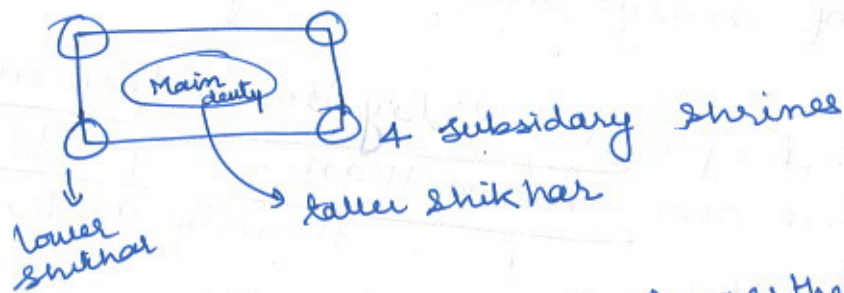 Main
deuty
4 subsidary shrines
taller shikhar
lower
shikhar
the